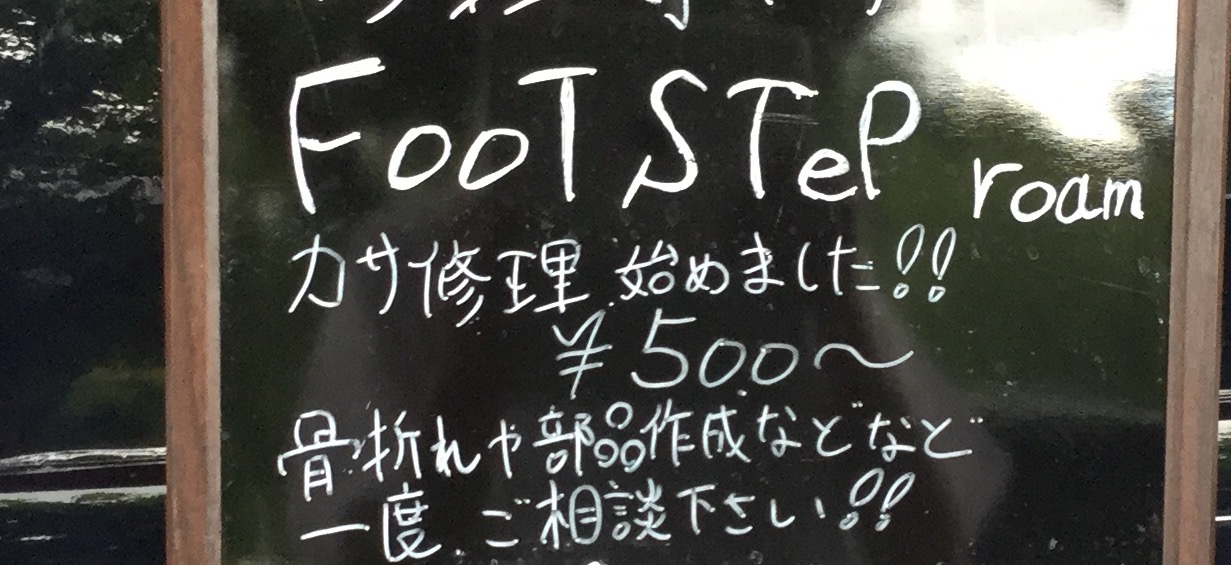 FooT STeP roam
カサ修理 始めました!!
¥500〜
骨折れや部品作成などなど
一度、ご相談下さい!!